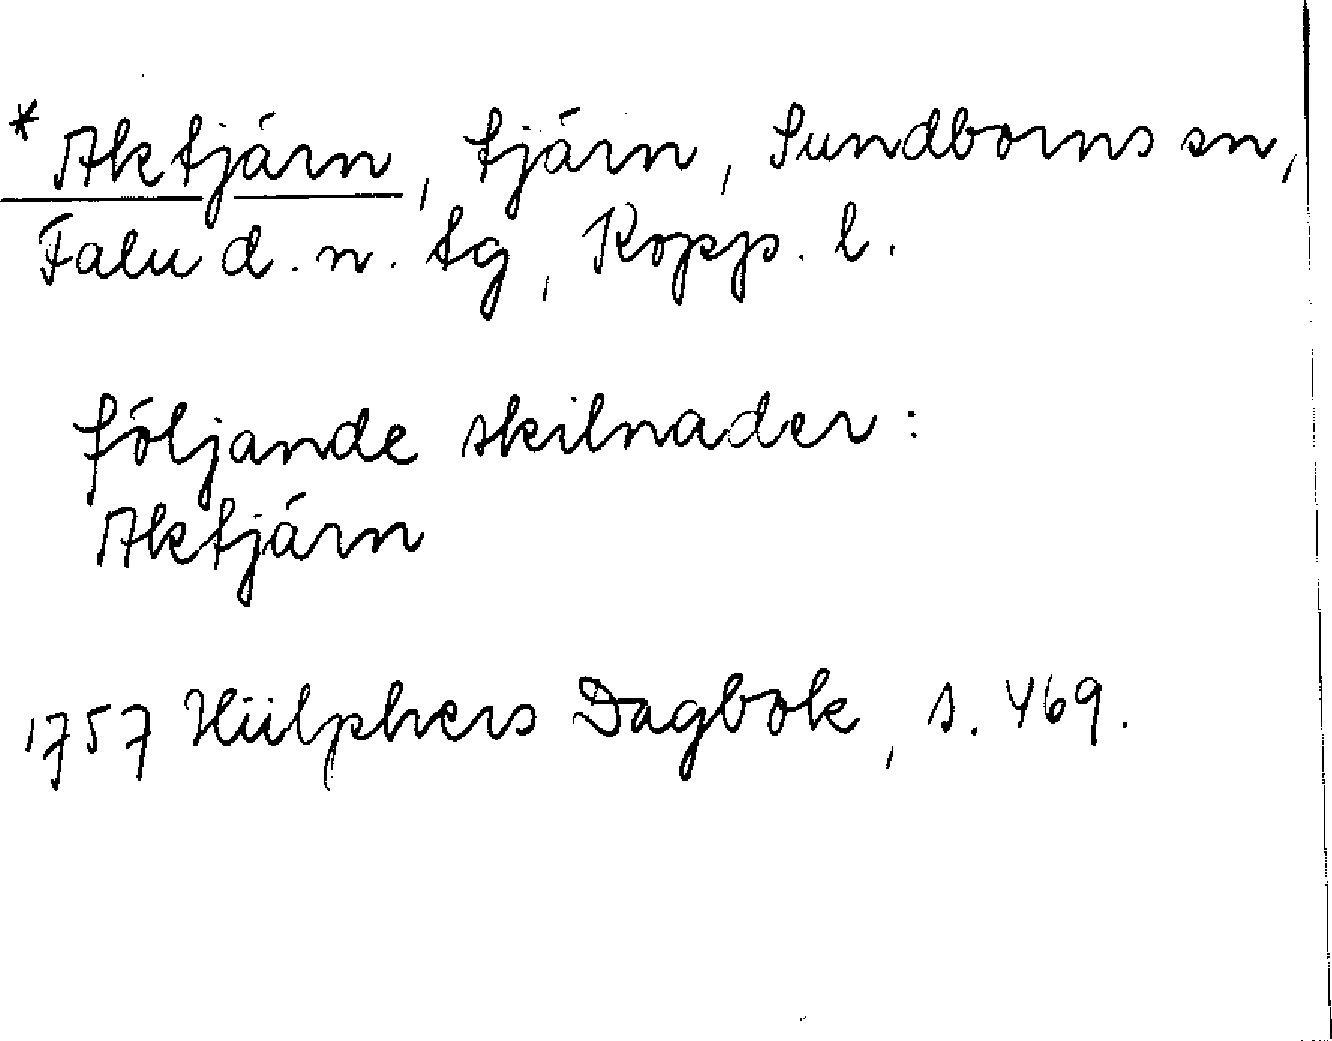 * Aktjärn, tjärn, Sundborns sn,
Falu d. n. tg, Kopp. l.
följande skilnader:
Aktjärn
1757 Hülphers Dagbok, s. 469.